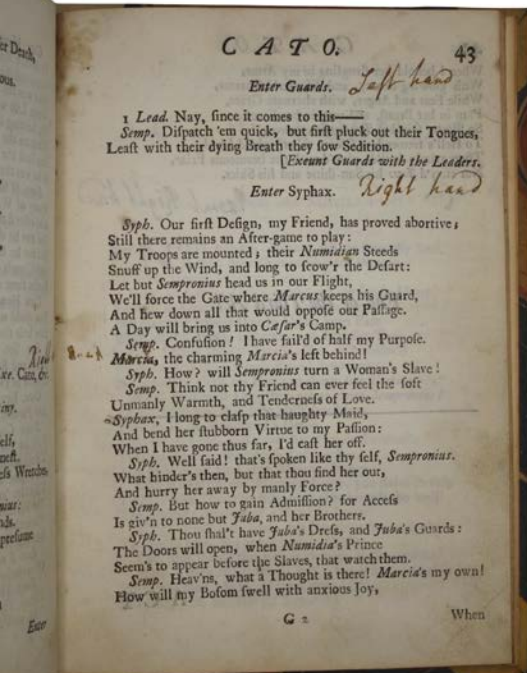 er Death,
ous.
CATO. 43
Enter Guards. Left hand
1 Lead. Nay, ſince it comes to this——
Semp. Diſpatch 'em quick, but firſt pluck out their Tongues,
Leaſt with their dying Breath they ſow Sedition.
[Exeunt Guards with the Leaders.
Enter Syphax. Right hand
Syph. Our firſt Deſign, my Friend, has proved abortive;
Still there remains an After-game to play:
My Troops are mounted; their Numidian Steeds
Snuff up the Wind, and long to ſcow'r the Deſart:
Let but Sempronius head us in our Flight,
We'll force the Gate where Marcus keeps his Guard,
And hew down all that would oppoſe our Paſſage.
A Day will bring us into Cæſar's Camp.
Semp. Confuſion! I have fail'd of half my Purpoſe.
Marcia, the charming Marcia's left behind!
Syph. How? will Sempronius turn a Woman's Slave!
Semp. Think not thy Friend can ever feel the ſoft
Unmanly Warmth, and Tenderneſs of Love.
Syphax, I long to claſp that haughty Maid,
And bend her ſtubborn Virtue to my Paſſion:
When I have gone thus far, I'd caſt her off.
Syph. Well ſaid! that's ſpoken like thy ſelf, Sempronius.
What hinder's then, but that thou find her out,
And hurry her away by manly Force?
Semp. But how to gain Admiſſion? for Acceſs
Is giv'n to none but Juba, and her Brothers.
Syph. Thou ſhal't have Juba's Dreſs, and Juba's Guards:
The Doors will open, when Numidia's Prince
Seem's to appear before the Slaves, that watch them.
Semp. Heav'ns, what a Thought is there! Marcia's my own!
How will my Boſom ſwell with anxious Joy,
G 2 When
Cato, &c.
tiny.
elf,
neſt.
eſs Wretches
nius:
nds.
preſume
Enter